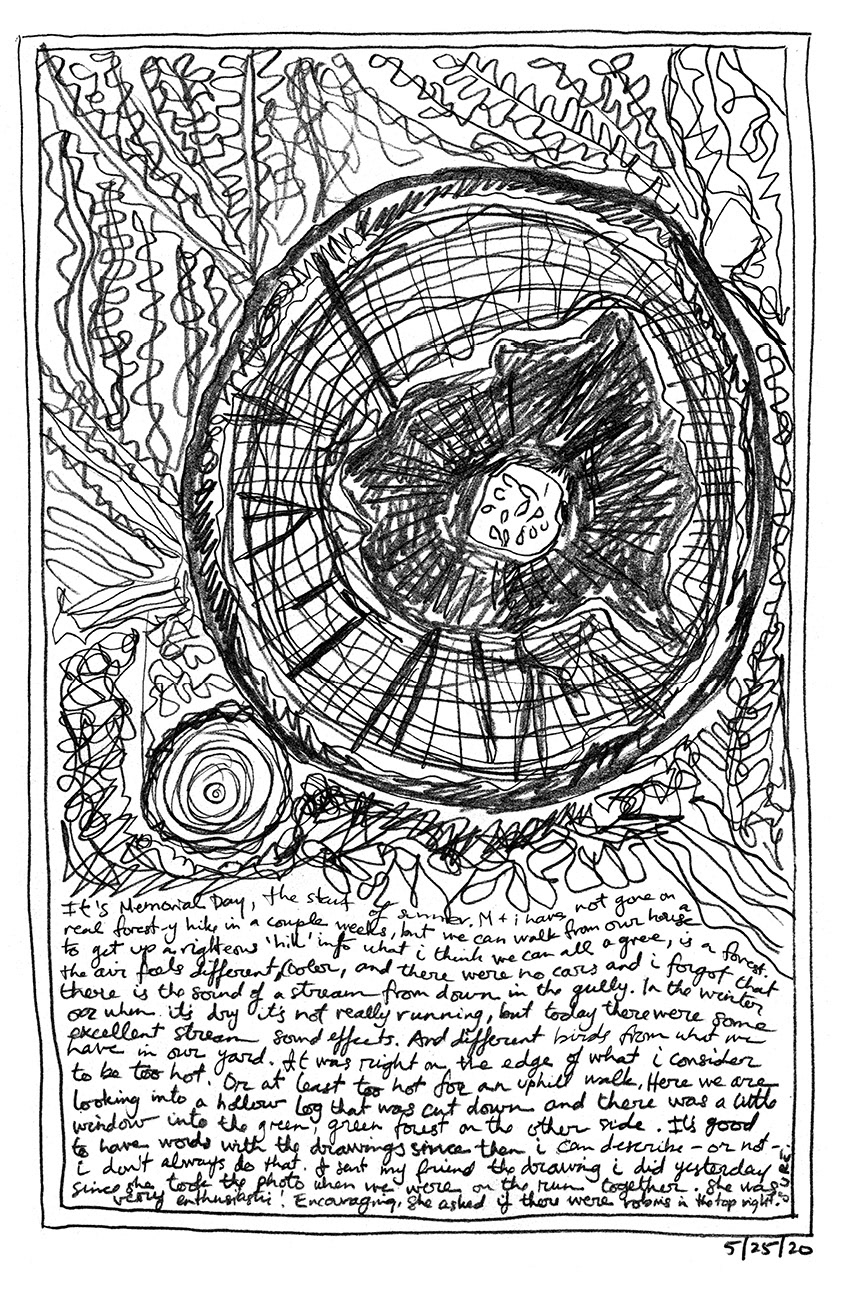 It's Memorial Day, the start of summer. M + i have not gone on a
real forest-y hike in a couple weeks, but we can walk from our house
to get up a righteous 'hill' into what i think we can all agree, is a forest.
the air feels different, cooler, and there were no cars and i forgot that
there is the sound of a stream from down in the gully. In the winter
or when it's dry it's not really running, but today there were some
excellent stream sound effects. And different birds from what we
have in our yard. It was right on the edge of what i consider
to be too hot. Or at least too hot for an uphill walk. Here we are
looking into a hollow log that was cut down and there was a little
window into the green, green forest on the other side. It's good
to have words with the drawings since then i can describe - or not -
i don't always do that. I sent my friend the drawing i did yesterday
since she took the photo when we were on the run together. She was
very enthusiastic! Encouraging, she asked if there were robins in the top right.
5/25/20